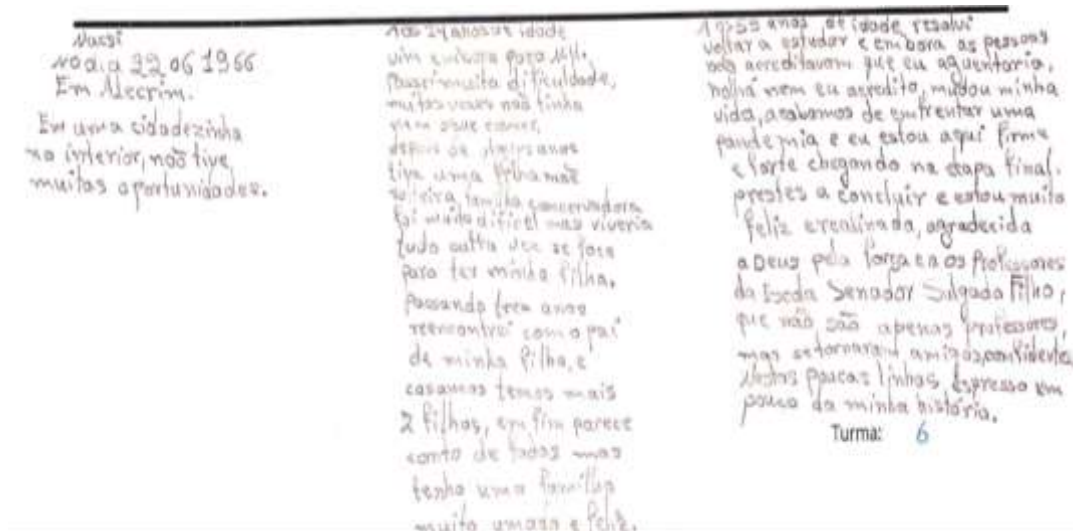 Nassi
no dia 22 06 1966
Em Alecrim.
Em uma cidadezinha
no interior, não tive
muitas oportunidades.
Aos 24 anos de idade
vim embora para
Passei muita dificuldade,
muitas vezes não tinha
nem oque comer,
depois de anos
tive uma filha mãe
solteira, familha concervadora
foi muito difícil mas viveria
tudo outra vez se fose
para ter minha filha,
Passando tres anos
reencontrei com o pai
de minha filha, e
casamos temos mais
2 filhos, em fim parece
conto de fadas mas
tenho uma familha
muito amada e feliz.
55 anos de idade, resolvi
voltar a estudar e embora as pessoas
não acreditavam que eu aguentaria,
nem eu acredito, mudou minha
vida, acabamos de emfrentar uma
pandemia e eu estou aqui firme
e forte chegando na etapa final.
prestes a concluir e estou muito
feliz e realizada, agradecida
a Deus pela força e a os Professores
da Escola Senador Salgado Filho,
que não são apenas professores,
mas se tornaram amigos, confidente,
Nestas poucas linhas, espresso um
pouco da minha história.
Turma: 6